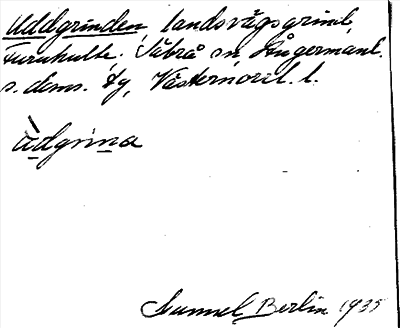 Uddgrinden, landsvägsgrind,
Furuhulte, Säbrå sn, Ångermanl.
s. doms. tg, Västernorrl. l.
ùdgrina
Samuel Berlin 1935